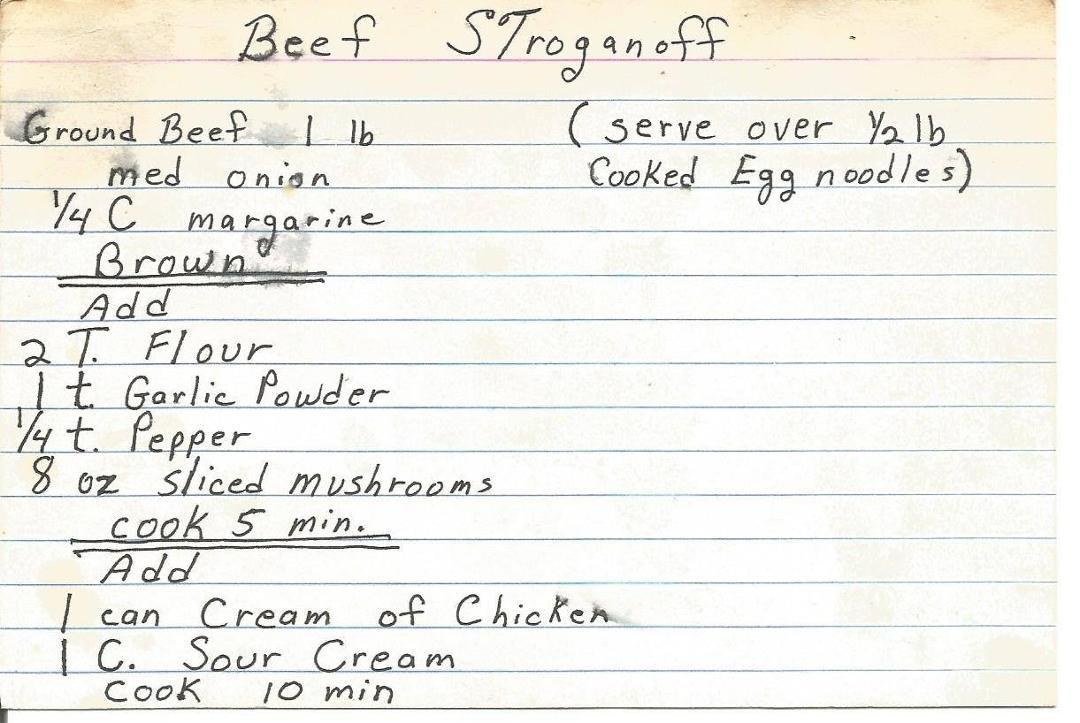 Beef STroganoff
Ground Beef 1 lb
(serve over 1/2 lb
med onion
Cooked Egg noodles)
1/4 C margarine
Brown
Add
2 T. Flour
1 t. Garlic Powder
1/4 t. Pepper
8 oz sliced mushrooms
cook 5 min.
Add
1 can Cream of Chicken
1 C. Sour Cream
cook 10 min